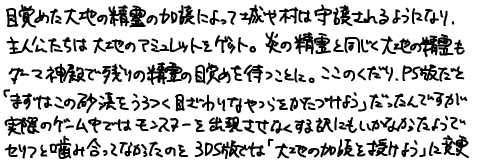 目覚めた大地の精霊の加護によって城や村は守護されるようになり、
主人公たちは大地のアミュレットをゲット。炎の精霊と同じく大地の精霊も
ダーマ神殿で残りの精霊の目覚めを待つことに。ここのくだり、PS版だと
「まずはこの砂漠をうろつく目ざわりなやつらをかたづけよう」だったんですが
実際のゲーム中ではモンスターを出現させなくする訳にもいかなかったようで
セリフと噛み合ってなかったのを3DS版では「大地の加護を授けよう」に変更